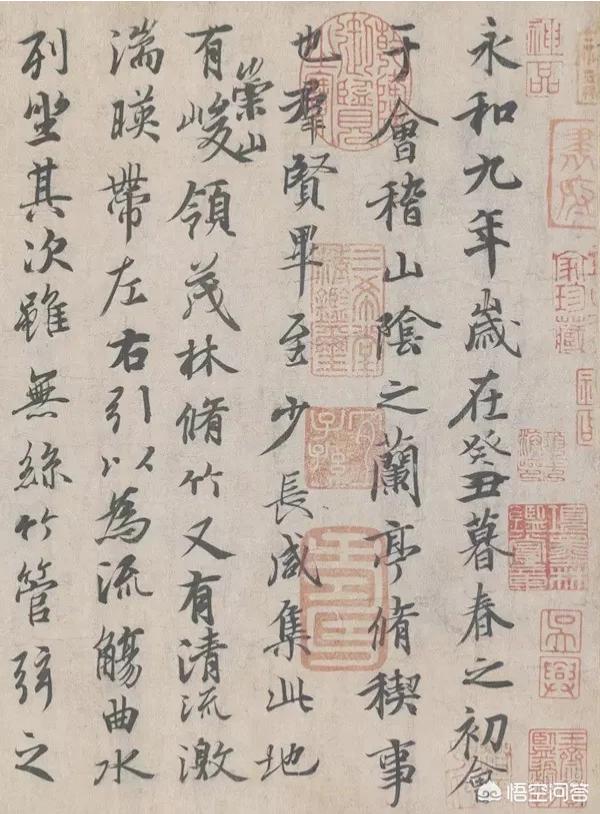 神品
永和九年歲在癸丑暮春之初會
于會稽山陰之蘭亭脩稧事
也群賢畢至少長咸集此地
有崇山峻領茂林脩竹又有清流激
湍暎帶左右引以為流觴曲水
列坐其次雖無絲竹管弦之
家珍藏
悟空问答